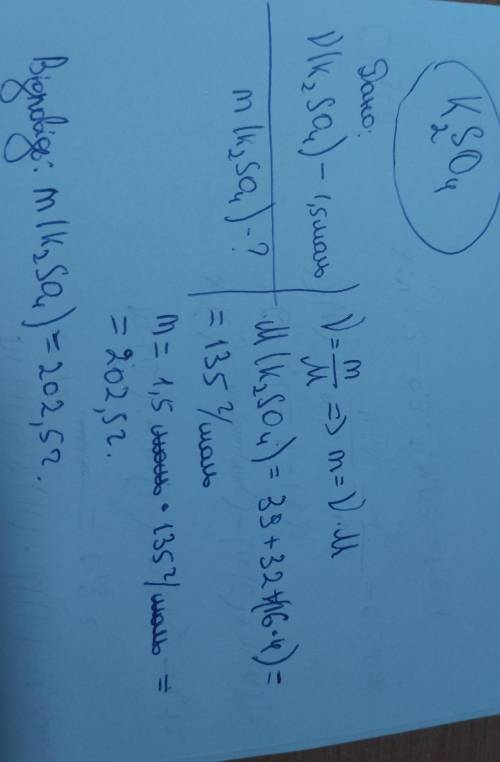 K₂SO₄
Дано:
ν(K₂SO₄) – 1,5 моль
m(K₂SO₄) - ?
ν = m/M => m = ν·M
M(K₂SO₄) = 39 + 32 + (16·4) =
= 135 г/моль
m = 1,5 моль · 135 г/моль =
= 202,5 г.
Відповідь: m(K₂SO₄) = 202,5 г.